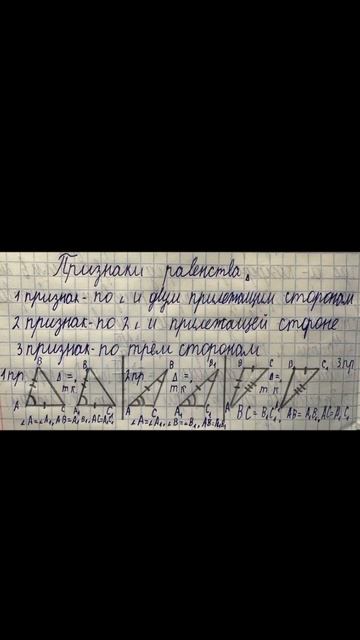 Признаки равенства △
1 признак - по ∠ и двум прилежащим сторонам
2 признак - по 2 ∠ и прилежащей стороне
3 признак - по трем сторонам
1 пр. B △ = т.к. B₁ A C A₁ C₁
2 пр. B △ = т.к. B₁ A C A₁ C₁
B C △ = т.к. B₁ C₁ 3 пр. A A₁
∠A = ∠A₁, AB = A₁B₁, AC = A₁C₁
∠A = ∠A₁, ∠B = ∠B₁, AB = A₁B₁
BC = B₁C₁, AB = A₁B₁, AC = A₁C₁